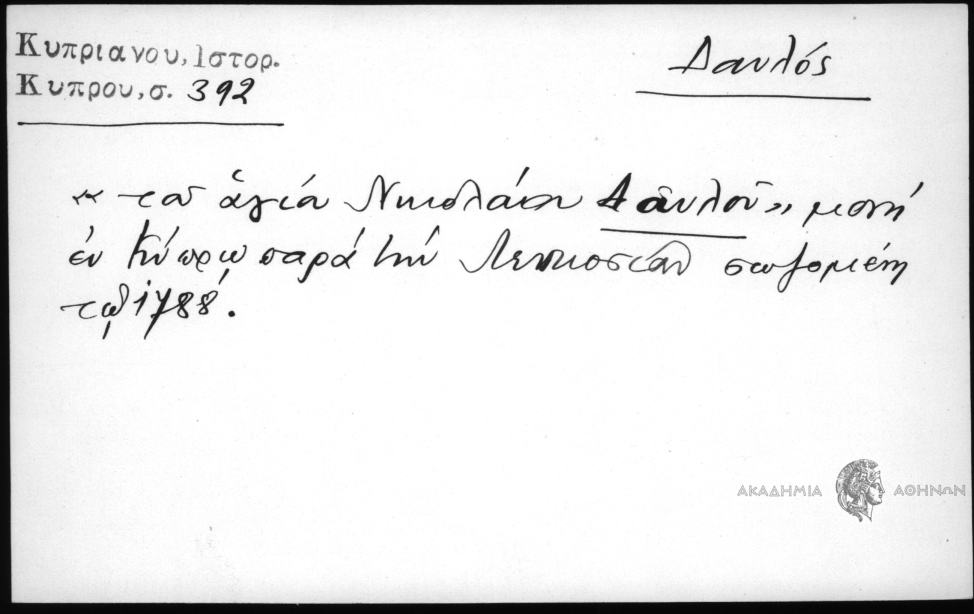 Κυπριανου, Ιστορ.
Κυπρου, σ. 392
Δαυλός
« τοῦ ἁγίου Νικολάου Δαυλοῦ» μονή
ἐν Κύπρῳ παρά τήν Λευκοσίαν σωζομένη
τῷ 1788.
ΑΚΑΔΗΜΙΑ ΑΘΗΝΩΝ